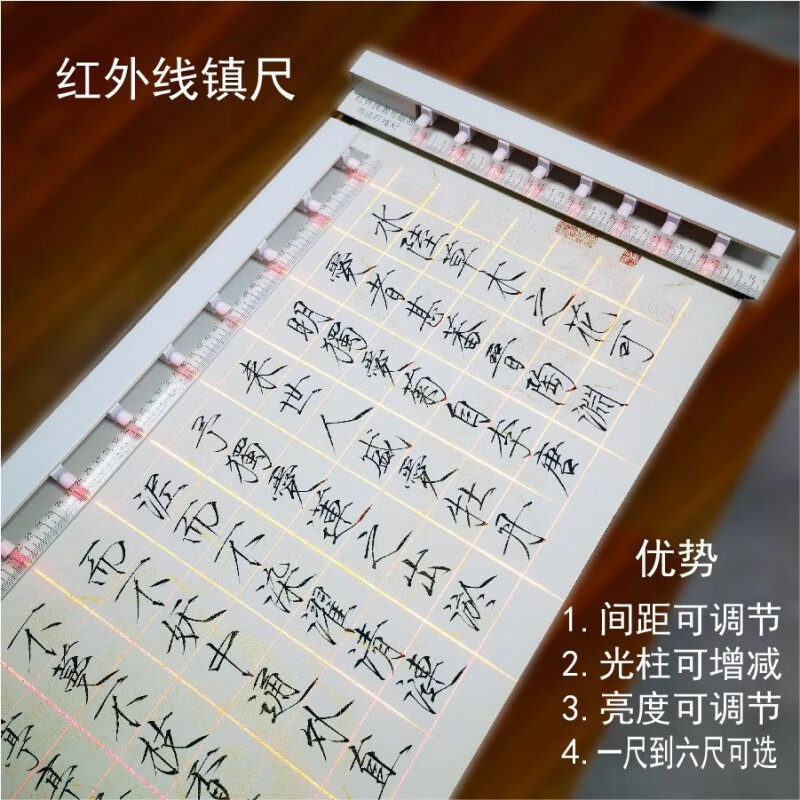 红外线镇尺
水陸草木之花可
愛者甚蕃晉陶淵
明獨愛菊自李唐
来世人盛愛牡丹
予獨愛蓮之出淤
泥而不染濯清漣
而不妖中通外直
不蔓不枝香
亭亭
优势
1.间距可调节
2.光柱可增减
3.亮度可调节
4.一尺到六尺可选